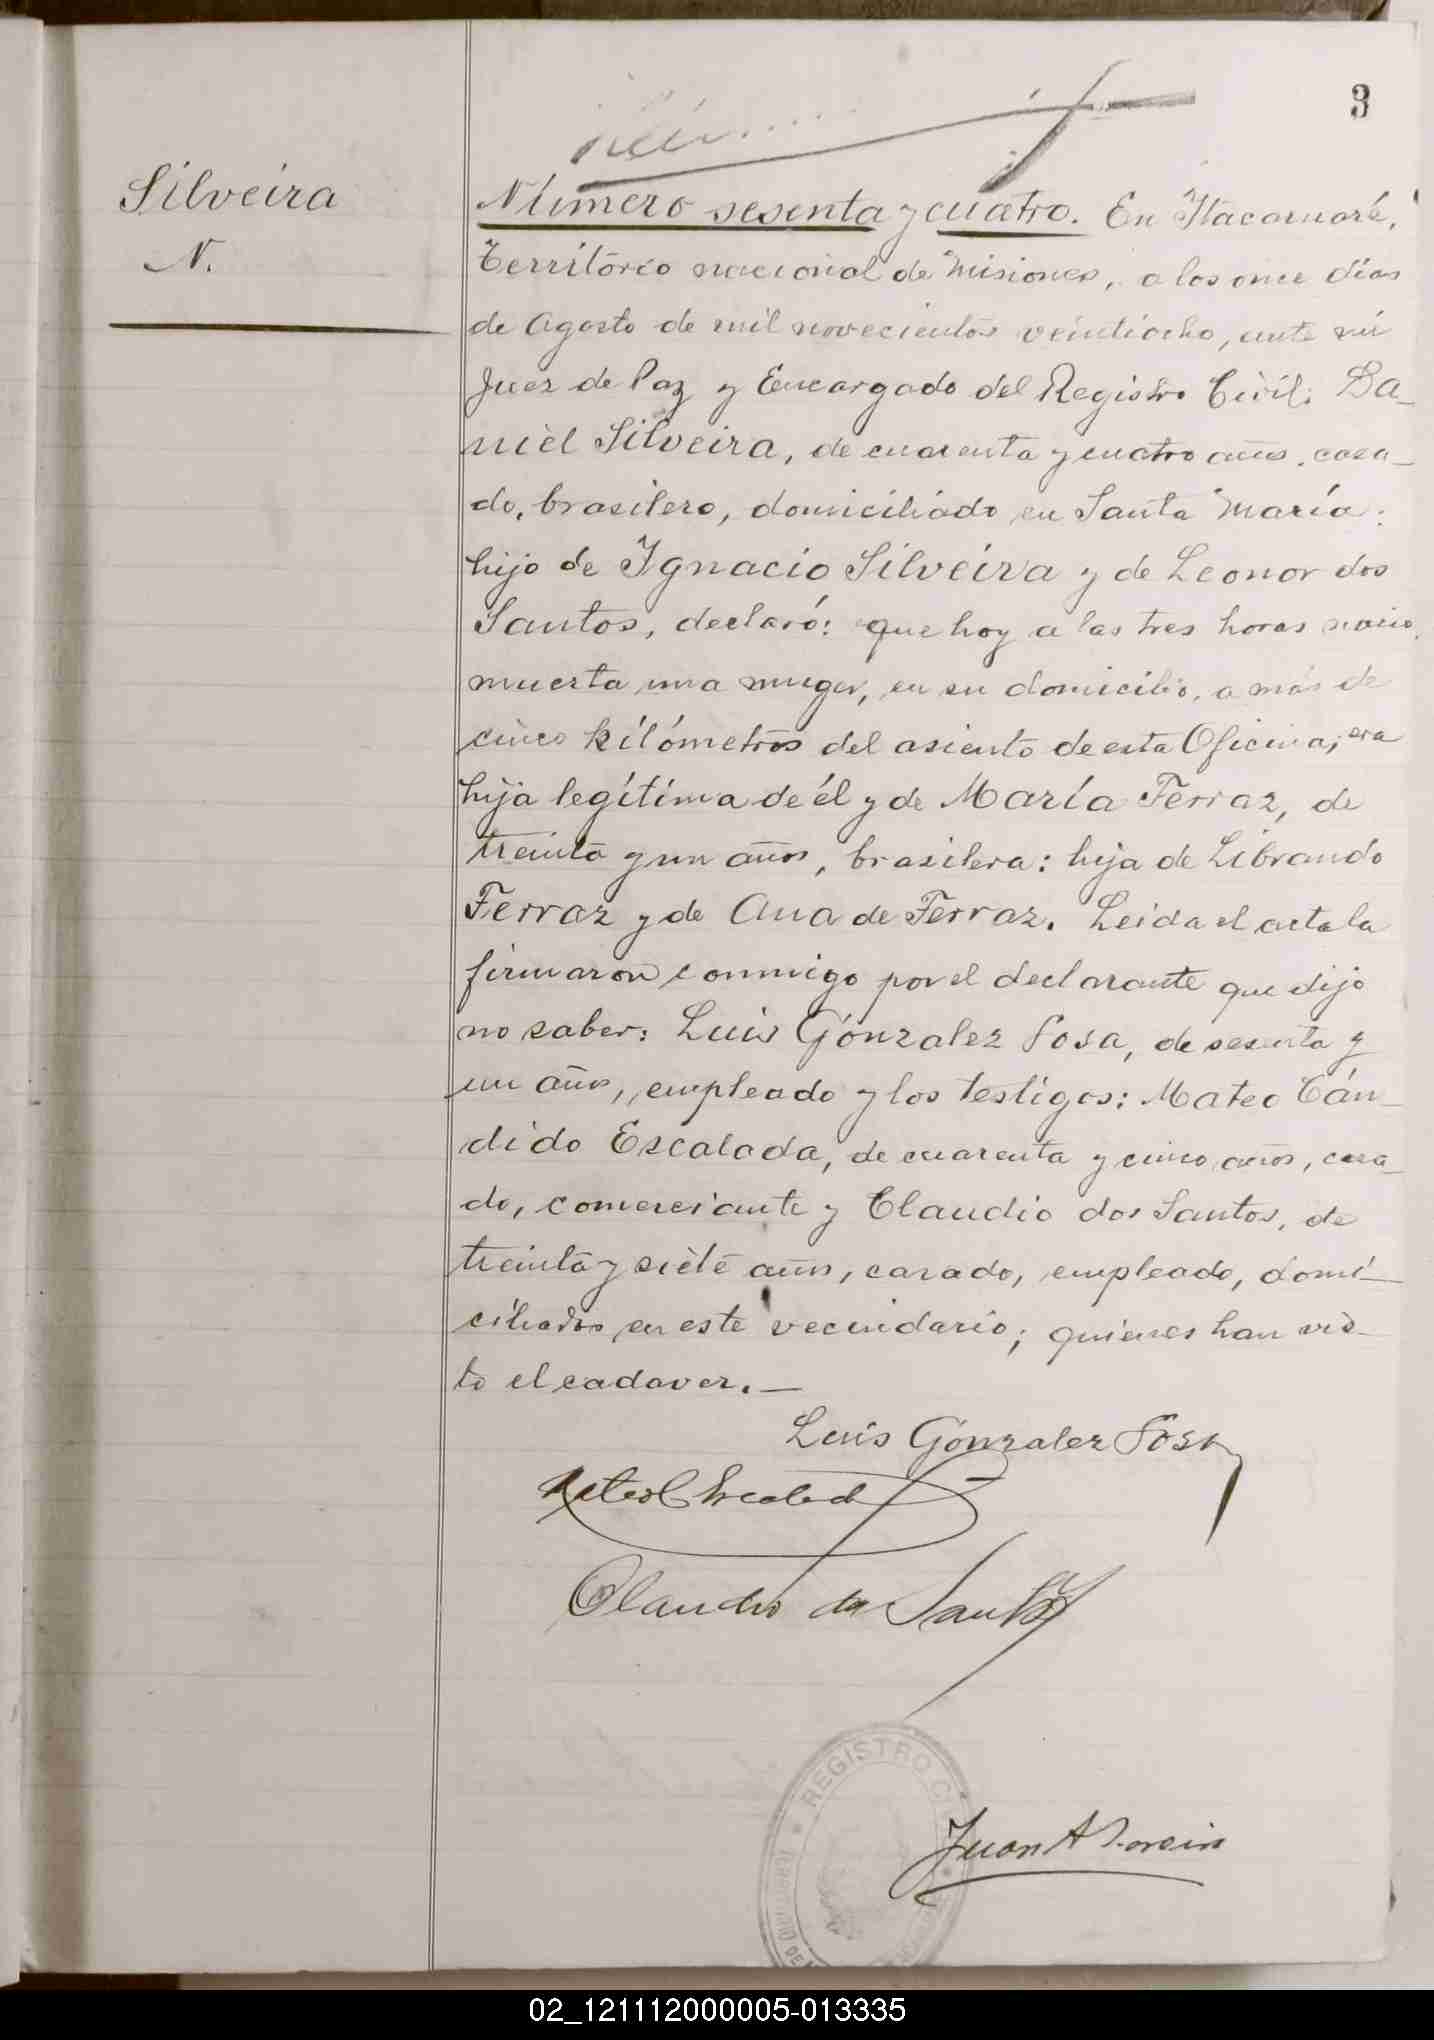 3
Silveira
N.
Número sesenta y cuatro. En Itacaruaré,
Território nacional de Misiones, a los once días
de Agosto de mil novecientos veintiocho, ante mí
Juez de Paz y Encargado del Registro Civil: Da_
niel Silveira, de cuarenta y cuatro años, casa_
do, brasilero, domiciliado en Santa María:
hijo de Ignacio Silveira y de Leonor dos
Santos, declaró: que hoy a las tres horas nació
muerta una muger, en su domicilio, a más de
cinco kilómetros del asiento de esta Oficina; era
hija legítima de él y de María Ferraz, de
treinta y un años, brasilera: hija de Librando
Ferraz y de Ana de Ferraz. Leida el acta la
firmaron conmigo por el declarante que dijo
no saber: Luis González Sosa, de sesenta y
un años, empleado y los testigos: Mateo Cán_
dido Escalada, de cuarenta y cinco años, casa_
do, comerciante y Claudio dos Santos, de
treinta y siete años, casado, empleado, domi_
ciliados en este vecindario; quienes han vis_
to el cadaver._
Luis González Sosa
Claudio dos Santos
REGISTRO C
Juan A
02_121112000005-013335